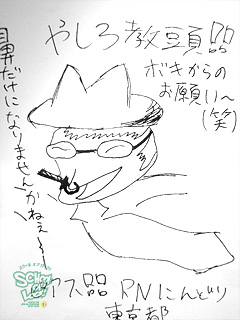 やしろ教頭品
ボキからの
お願い〜
(笑)
鼻だけに
なりませんかねぇ〜
SCHOOL
OF
LOCK!
品
RNにんどり
東京都